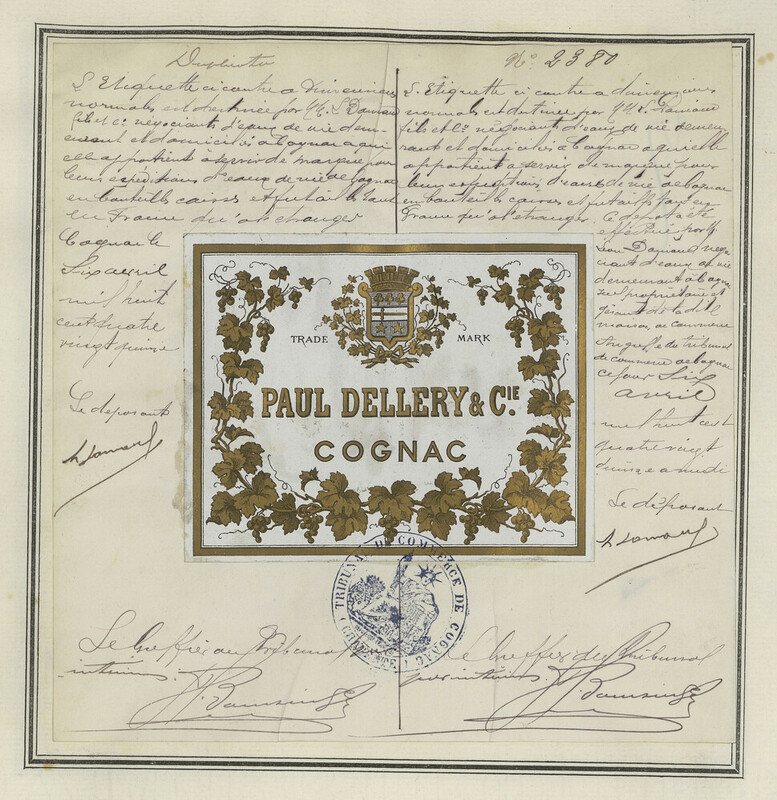 Duplicata
L'Etiquette ci contre a dimensions
normales est destinée par M. L. Damaud
fils et Cie négociants d'eaux de vie dem-
eurant et domiciliés à Cognac à qui
elle appartient à servir de marque pour
leurs expéditions d'eaux de vie de Cognac
en bouteilles caisses et futailles tant
en France qu'à l'étranger
Cognac le
Six avril
mil huit
cent quatre
vingt quinze
Le déposant
No 2380
L'Etiquette ci contre a dimensions
normales est destinée par MM. L. Damaud
fils et Cie négociants d'eaux de vie demeu
rant et domiciliés à Cognac à qui elle
appartient à servir de marque pour
leurs expéditions d'eaux de vie de Cognac
en bouteilles caisses et futailles tant en
France qu'à l'étranger
Ce dépôt a été
effectué par M.
Léon Damaud négo
ciant d'eaux de vie
demeurant à Cognac
seul propriétaire et
gérant de la dite
maison de commerce
au greffe du tribunal
de commerce de Cognac
ce jour Six
avril
mil huit cent
quatre vingt
quinze a midi
Le déposant
TRADE MARK
PAUL DELLERY & CIE
COGNAC
TRIBUNAL DE COMMERCE DE COGNAC
Le Greffier du Tribunal
Le Greffier du Tribunal
par intérim